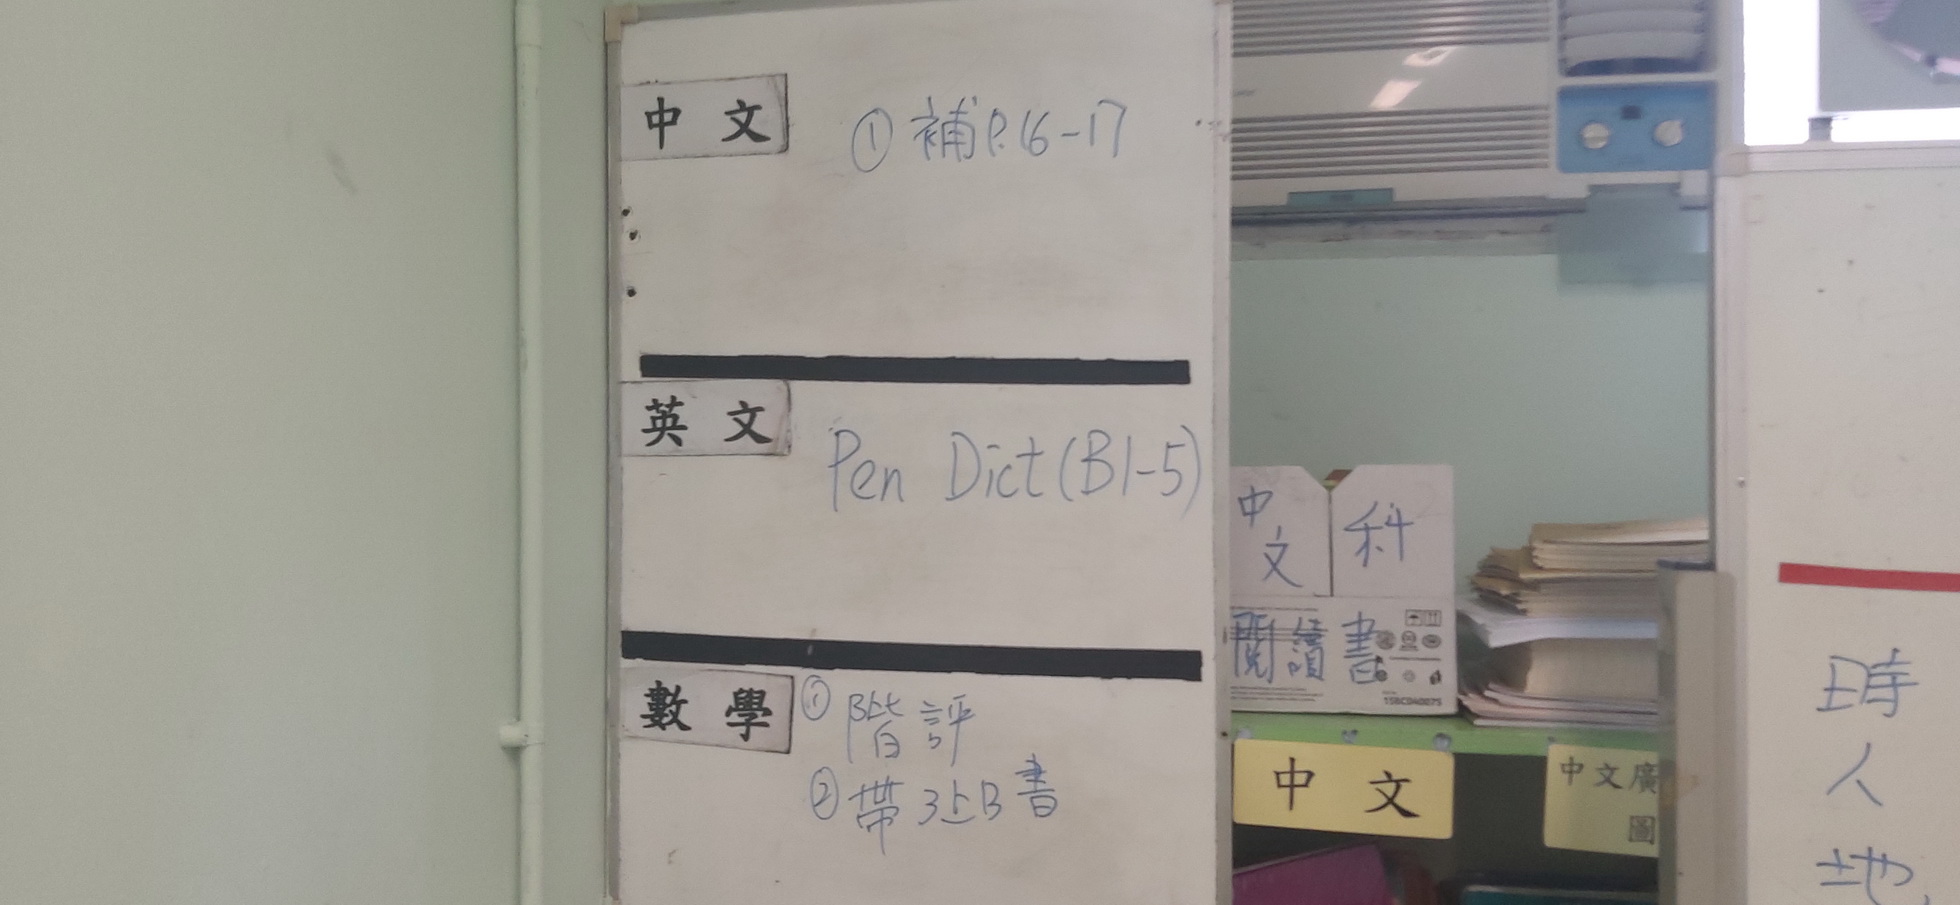 中文
① 補 P.16-17
英文
Pen Dict (B1-5)
數學
① 階評
② 帶3上B書
中文科
閱讀書
15BC040075
中文
中文廣
圖
時
人
地